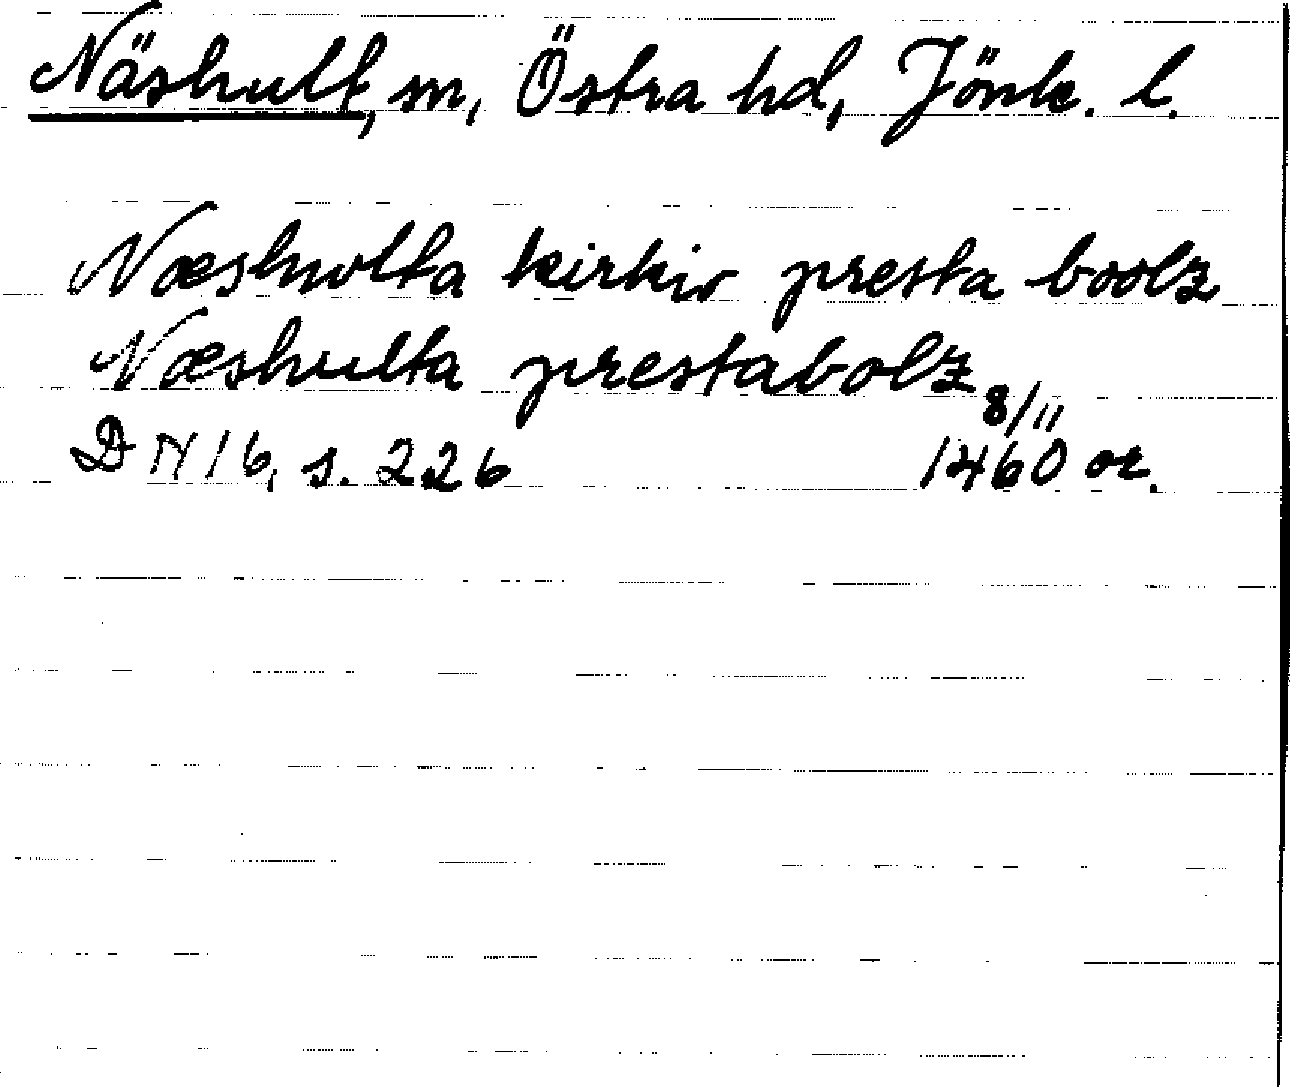 Näshult, sn, Östra hd, Jönk. l.
Næshwlta kirkiw presta boolz
Næshulta prestabolz
8/11
DN 16, s. 226 1460 or.